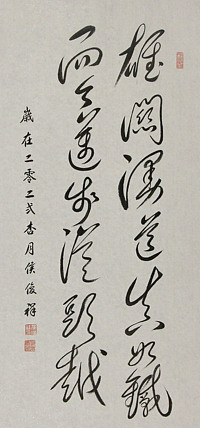 雄關漫道真如鐵
而今邁步從頭越
歲在二零二弍杏月侯俊祥